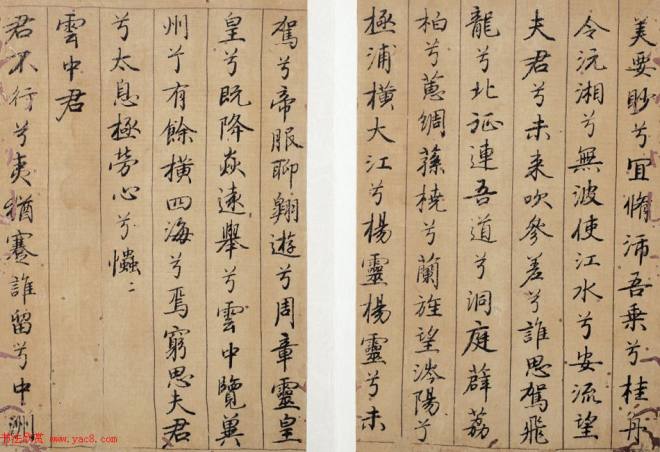 駕兮帝服聊翱遊兮周章靈皇
皇兮既降猋遠舉兮雲中覽兾
州兮有餘橫四海兮焉窮思夫君
兮太息極勞心兮𢥞〻
雲中君
君不行兮夷猶蹇誰留兮中洲
美要眇兮宜脩沛吾乘兮桂舟
令沅湘兮無波使江水兮安流望
夫君兮未来吹參差兮誰思駕飛
龍兮北征連吾道兮洞庭薜荔
柏兮蕙綢蓀橈兮蘭旌望涔陽兮
極浦橫大江兮楊靈楊靈兮未
书法欣赏 www.yac8.com